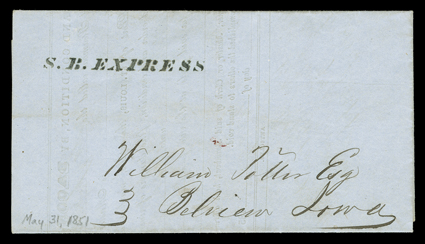 S. B. EXPRESS
William Potter Esq
Belview Iowa
May 31, 1851